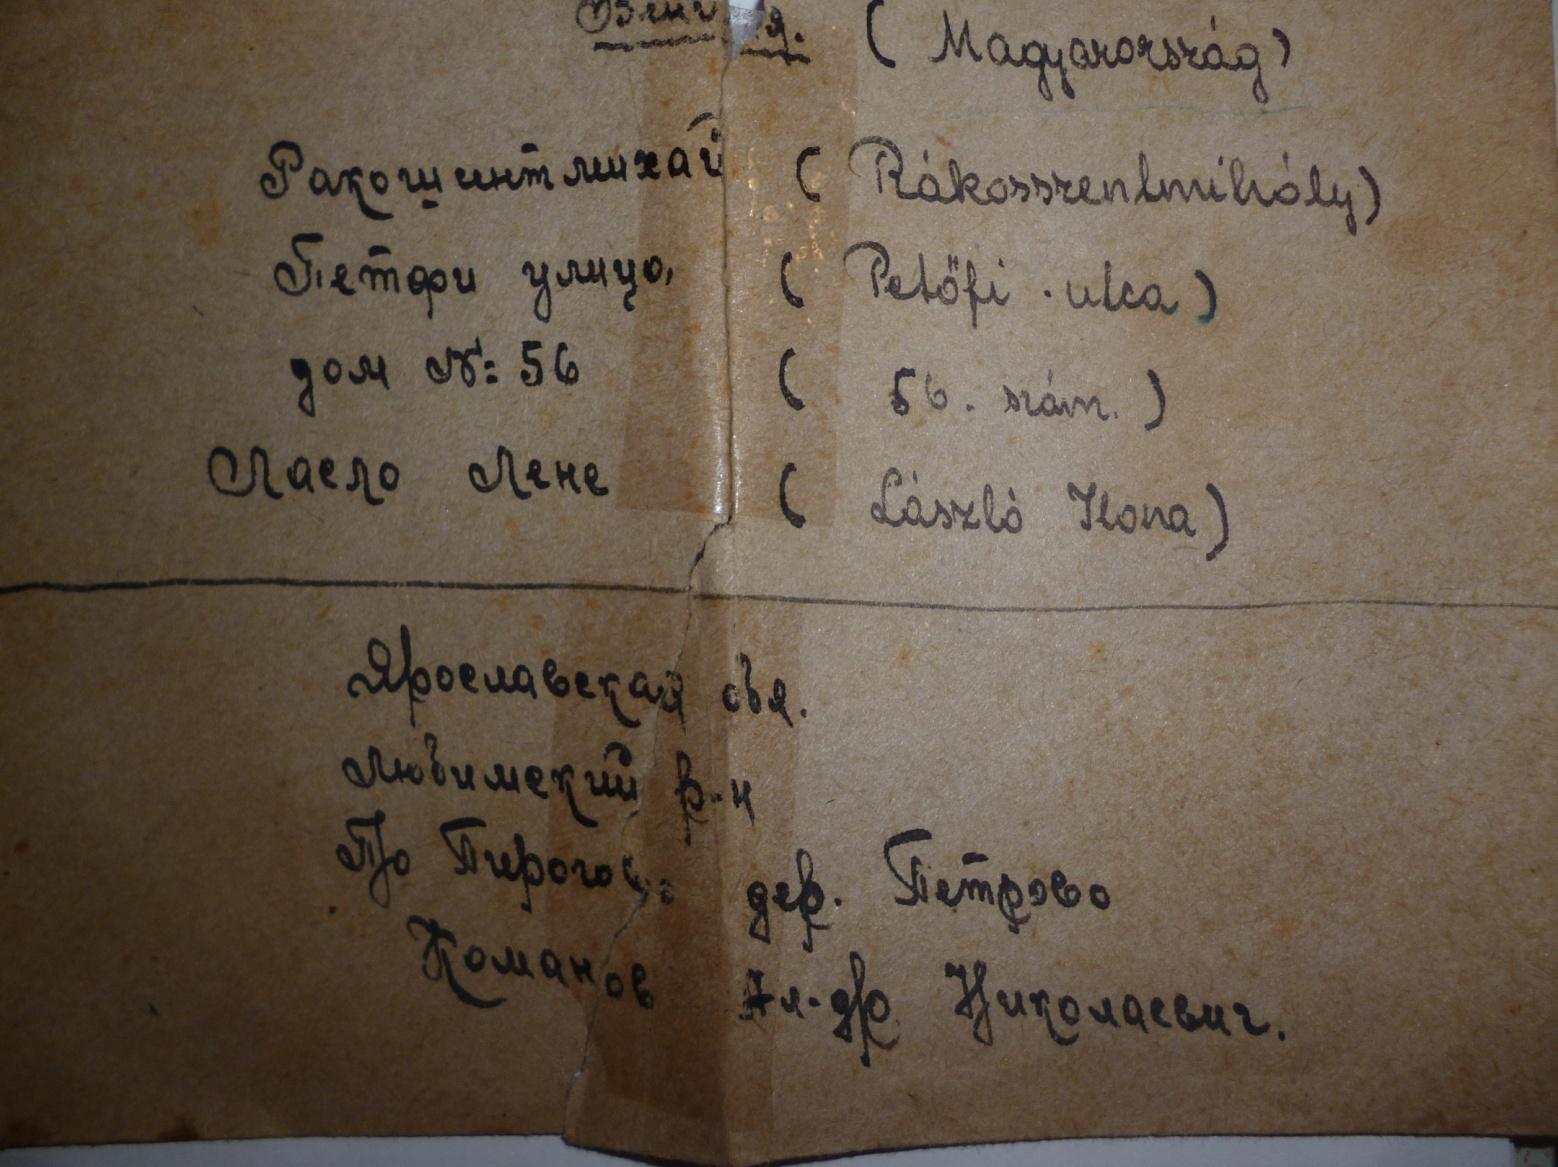 ( Magyarország)
Ракошинтмихай ( Rákosszentmihály)
Петэфи улица, ( Petőfi · utca)
дом №: 56 ( 56. szám. )
Ласло Лене ( László Ilona)
Ярославская обл.
Любимский р-н
П/о Пирогово дер. Петрово
Команов Ал-др Николаевич.